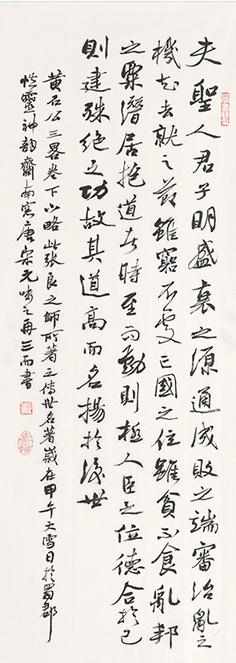 夫聖人君子明盛衰之源通成敗之端審治亂之
機知去就之節雖窮不處亡國之位雖貧不食亂邦
之粟潛居抱道者時至而動則極人臣之位德合於己
則建殊絕之功故其道高而名揚於後世
黄石公三畧卷下下略此張良之師所著之傳世名著歲在甲午大雪日於蜀都
靈神韵齋南窗唐宗元之再三而書